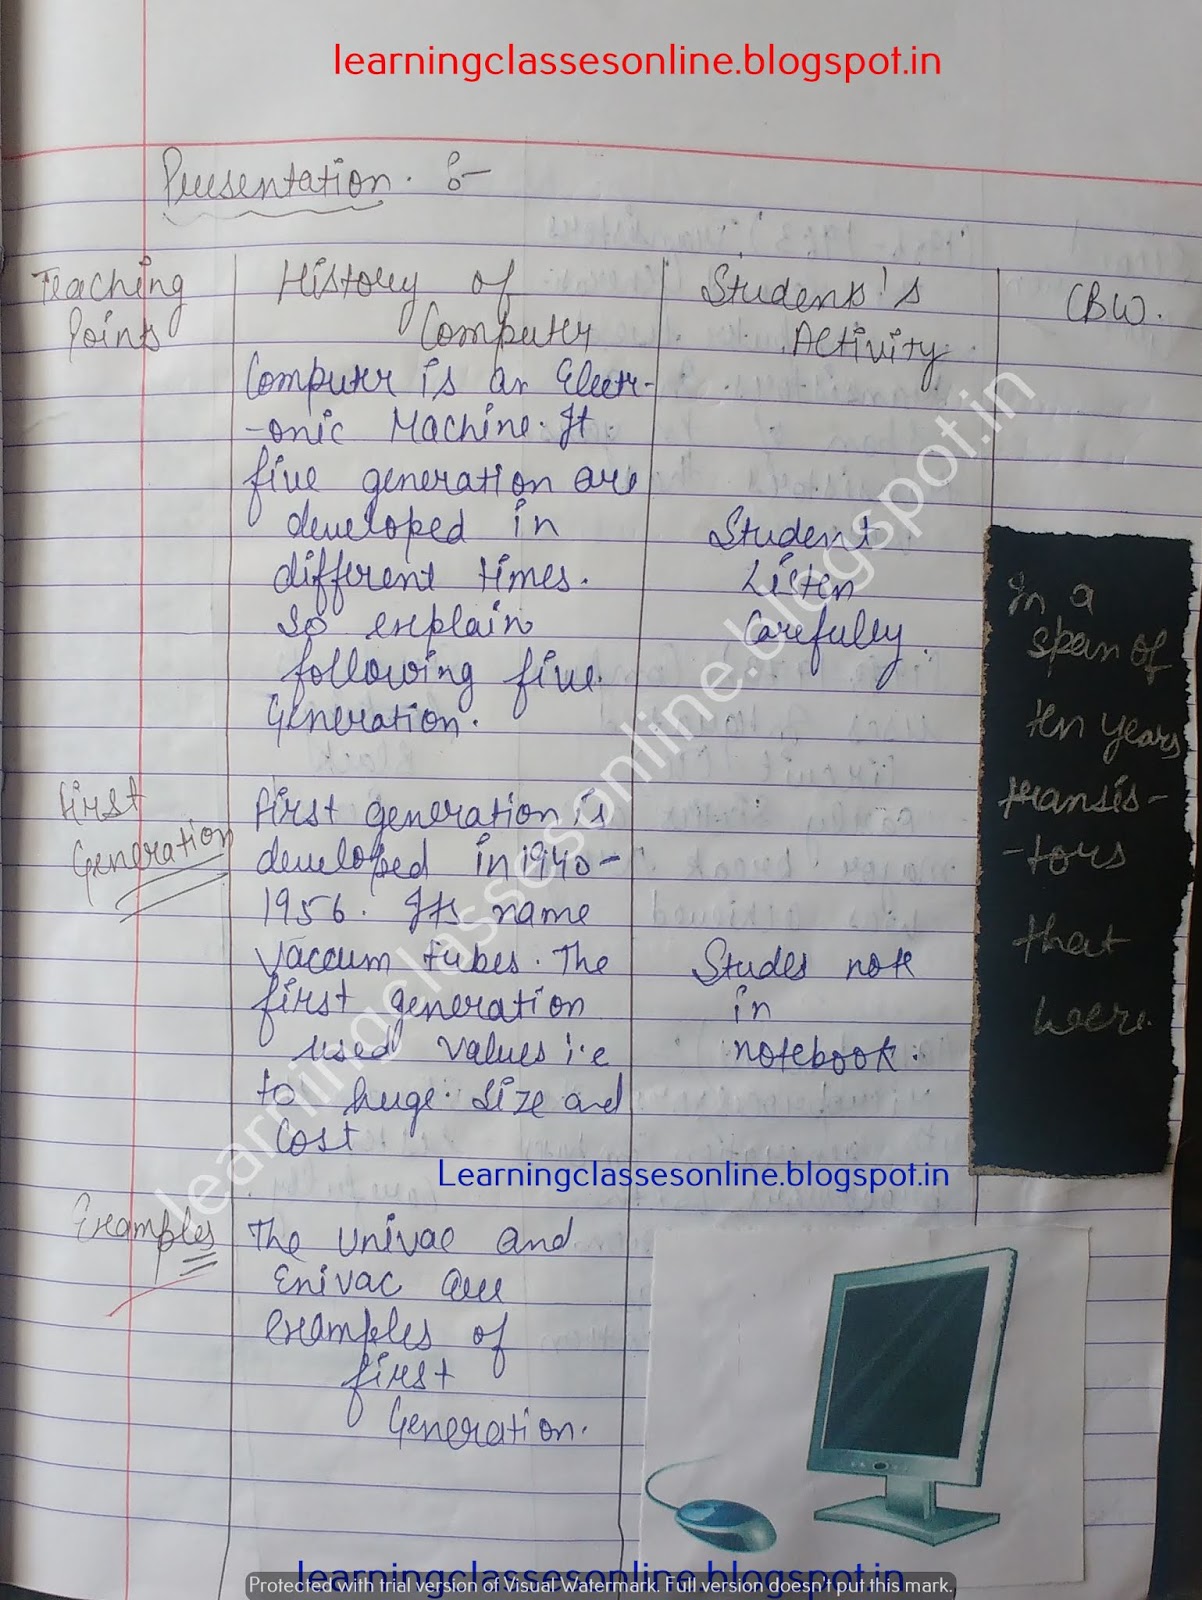 learningclassesonline.blogspot.in
Presentation. :-
Teaching Points
History of Computer
Student's Activity
CBW.
Computer is an Electr-
-onic Machine. It
five generation are
developed in
different times.
So explain
following five
Generation.
Student
Listen
Carefully.
In a
span of
ten years
transis-
-tors
that
were.
First
Generation
First generation is
developed in 1940-
1956. Its name
Vaccum tubes. The
first generation
used values i.e
to huge. Size and
Cost
Studes note
in
notebook.
Learningclassesonline.blogspot.in
Examples
The Univac and
Enivac are
examples of
first
Generation.
learningclassesonline.blogspot.in
learningclassesonline.blogspot.in
Protected with trial version of Visual Watermark. Full version doesn't put this mark.